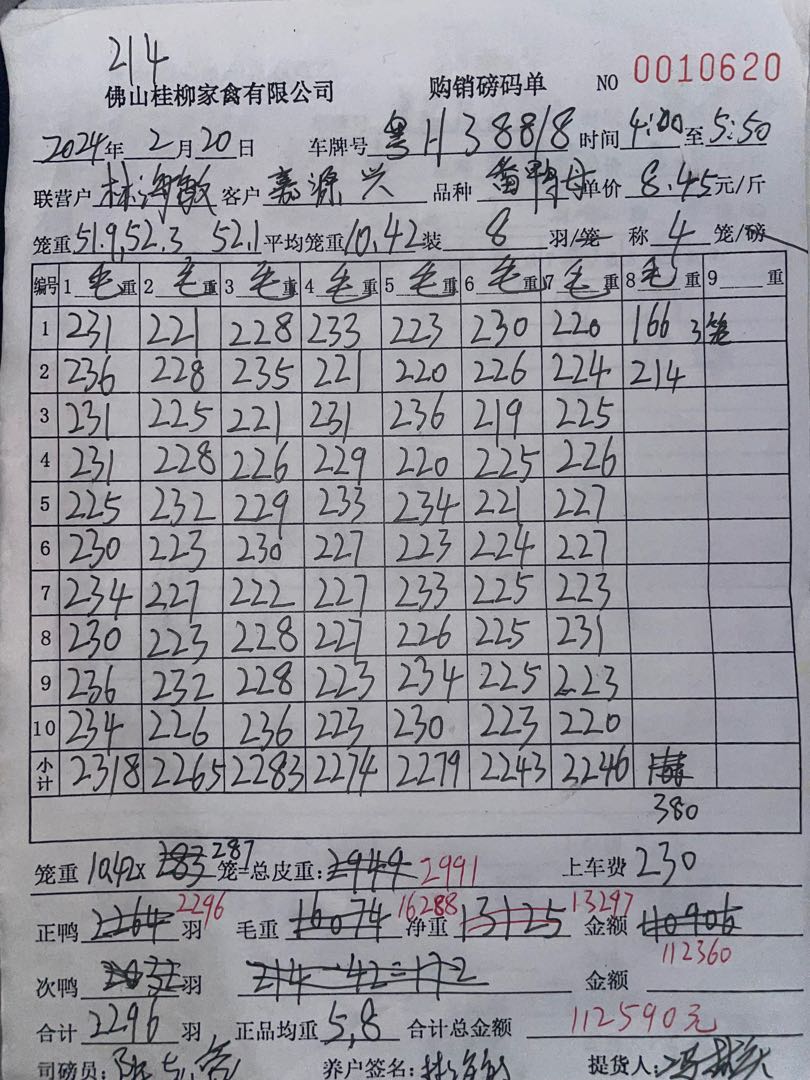 214
佛山桂柳家禽有限公司 购销磅码单 NO 0010620
2024年 2月20日 车牌号 粤H38818 时间 4:00 至 5:50
联营户 林海敏 客户 嘉源兴 品种 番鸭母 单价 8.45 元/斤
笼重 51.9,52.3 52.1 平均笼重 10.42 装 8 羽/笼 称 4 笼/磅
编号 1 毛 重 2 毛 重 3 毛 重 4 毛 重 5 毛 重 6 毛 重 7 毛 重 8 毛 重 9 重
1 231 221 228 233 223 230 220 166 3笼
2 236 228 235 221 220 226 224 214
3 231 225 221 231 236 219 225
4 231 228 226 229 220 225 226
5 225 232 229 233 234 221 227
6 230 223 230 227 223 224 227
7 234 227 222 227 233 225 223
8 230 223 228 227 226 225 231
9 236 232 228 223 234 225 223
10 234 226 236 223 230 223 220
小计 2318 2265 2283 2274 2279 2243 2246
380
笼重 10.42× 283 287 笼=总皮重: 2949 2991 上车费 230
正鸭 2264 2296 羽 毛重 16074 16288 净重 13125 13297 金额 110906
112360
次鸭 羽 214-42=172 金额
合计 2296 羽 正品均重 5,8 合计总金额 112590元
司磅员: 养户签名: 林海敏 提货人: